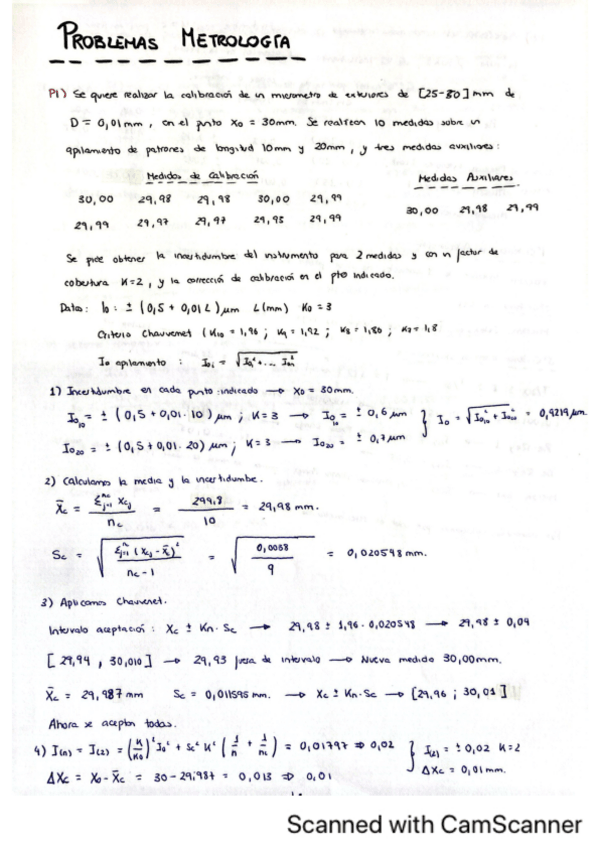 PROBLEMAS METROLOGÍA
P1) Se quiere realizar la calibración de un micrometro de exteriores de [25-80] mm de
D = 0,01mm, con el punto X₀ = 30mm. Se realizan 10 medidas sobre un
apilamiento de patrones de longitud 10mm y 20mm, y tres medidas auxiliares:
Medidas de Calibración
Medidas Auxiliares
30,00 29,98 29,98 30,00 29,99
30,00 29,98 29,99
29,99 29,97 29,97 29,93 29,99
Se pide obtener la incertidumbre del instrumento para 2 medidas y con un factor de
cobertura K=2, y la corrección de calibración en el pto indicado.
Datos: I₀: ± (0,5 + 0,01 L) μm L(mm) K₀ = 3
Criterio Chauvenet (K₁₀ = 1,96 ; K₉ = 1,92 ; K₈ = 1,80 ; K₇ = 1,8
I₀ apilamiento : I₀₁ = √(I₀² + ... I₀²)
1) Incertidumbre en cada punto indicado → X₀ = 30mm.
I₀₁₀ = ± (0,5 + 0,01 · 10) μm ; K=3 → I₀₁₀ = ± 0,6 μm } I₀ = √(I₀₁₀² + I₀₂₀²) = 0,9219 μm
I₀₂₀ = ± (0,5 + 0,01 · 20) μm ; K=3 → I₀₂₀ = ± 0,7 μm
2) Calculamos la media y la incertidumbre.
X̄c = Σⱼ₌₁ⁿᶜ Xcⱼ / nc = 299,8 / 10 = 29,98 mm.
Sc = √(Σⱼ₌₁ (Xcⱼ - X̄c)² / nc - 1) = √(0,0038 / 9) = 0,020548 mm.
3) Aplicamos Chauvenet.
Intervalo aceptación : Xc ± Kn · Sc → 29,98 ± 1,96 · 0,020548 → 29,98 ± 0,04
[29,94 , 30,010] → 29,93 fuera de intervalo → Nueva medida 30,00mm.
X̄c = 29,987 mm Sc = 0,011595 mm. → Xc ± Kn · Sc → [29,96 ; 30,01]
Ahora se aceptan todas.
4) I(n) = I(2) = (K/K₀)² I₀² + Sc² K² (1/n + 1/nc) = 0,01797 ⇒ 0,02 } I(2) = ± 0,02 K=2
ΔXc = X₀ - X̄c = 30 - 29,987 = 0,013 ⇒ 0,01 ΔXc = 0,01 mm.
Scanned with CamScanner